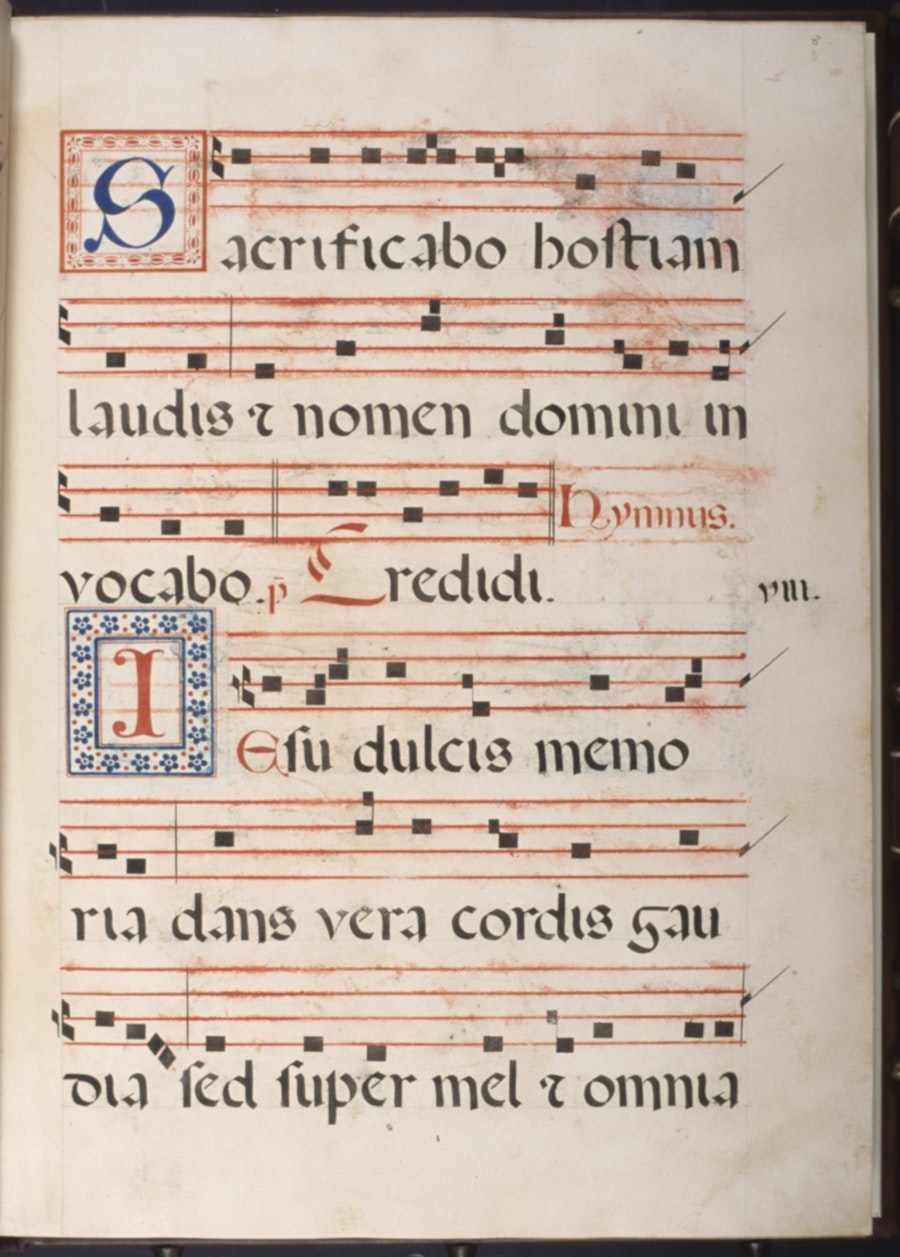 Sacrificabo hostiam
laudis ⁊ nomen domini in
Hymnus.
vocabo. p̄ Credidi. viii.
IEsu dulcis memo
ria dans vera cordis gau
dia sed super mel ⁊ omnia